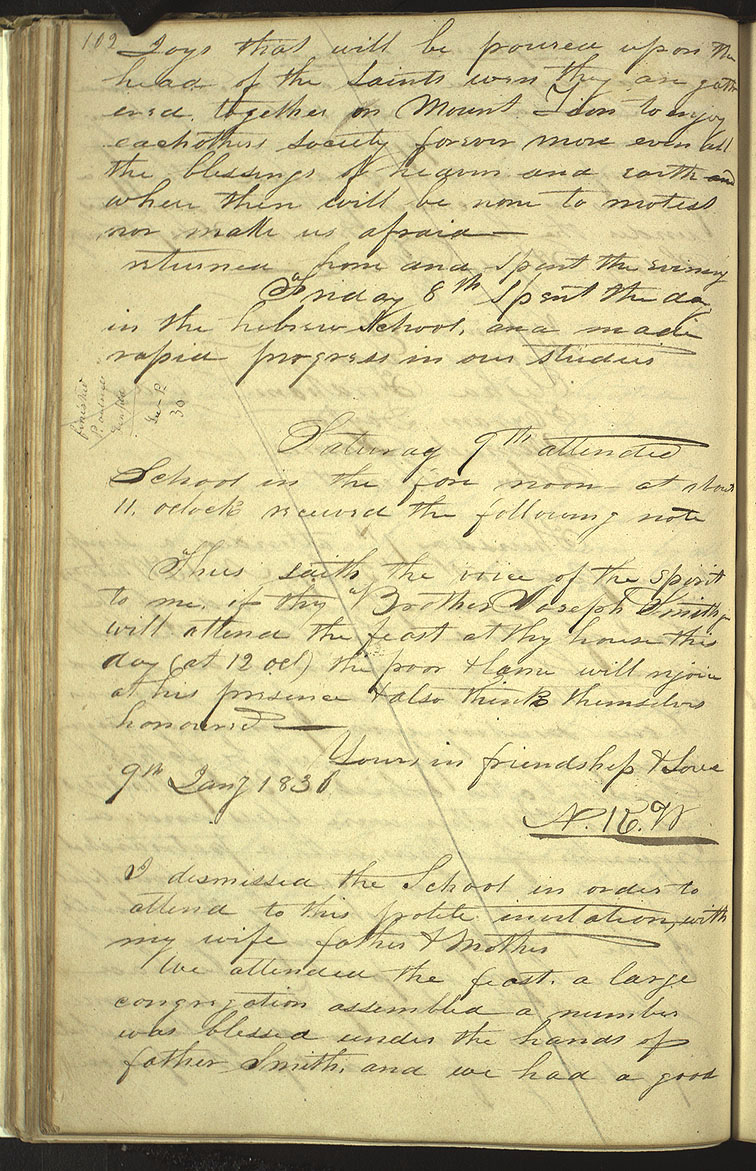 102
Joys that will be poured upon the
head of the Saints wen they are gath
ered together on Mount Zion to enjoy
eachothers society forever more even all
the blessings of heaven and earth and
where there will be none to molest
nor make us afraid—
returned home and spent the evening
Friday 8th Spent the day
in the hebrew School, and made
rapid progress in our studies
finished
30
Saturday 9th attended
School in the fore noon at about
11. oclock received the following note
Thus saith the voice of the spirit
to me, if thy Brother Joseph Smith jr
will attend the feast at thy house this
day (at 12 ocl) the poor & lame will rejoice
at his presence & also think themselves
honoured—
Yours in friendship & Love
9th Jany 1836
N. K. W
I dismissed the School in order to
attend to this polite invitation, with
my wife father & Mother
We attended the feast. a large
congregation assembled a number
was blessed under the hands of
father Smith, and we had a good